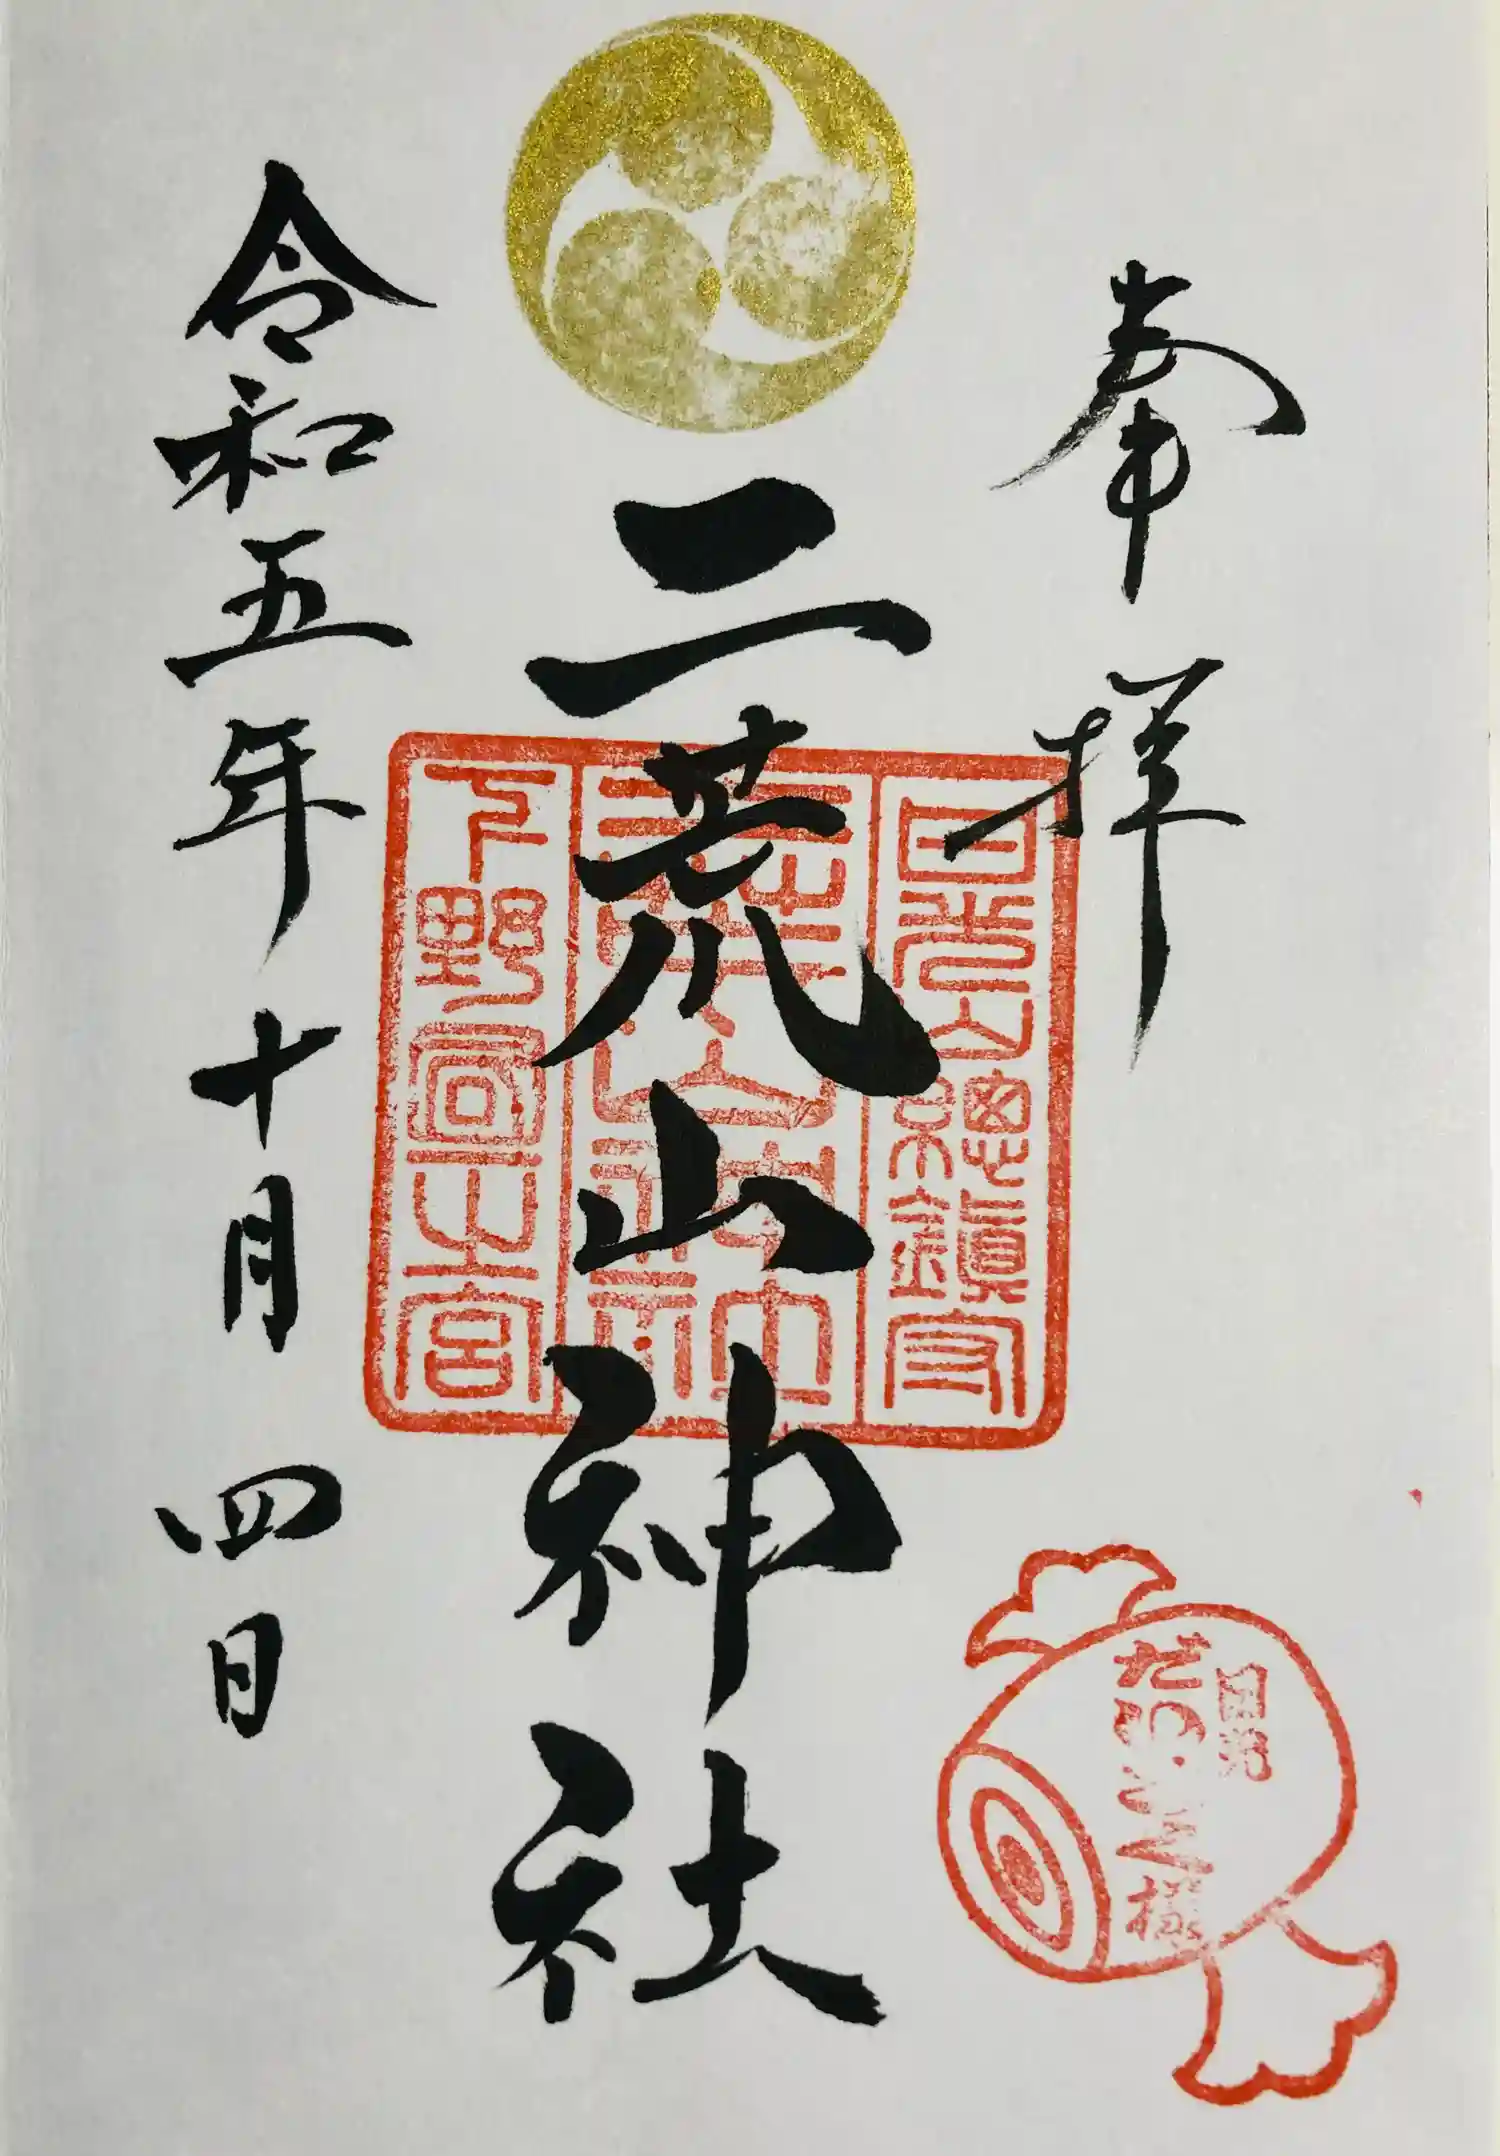 奉拝
日光山總鎮守
二荒山神社
二荒山神社
下野國一之宮
令和五年十月四日
日光
だいこく様